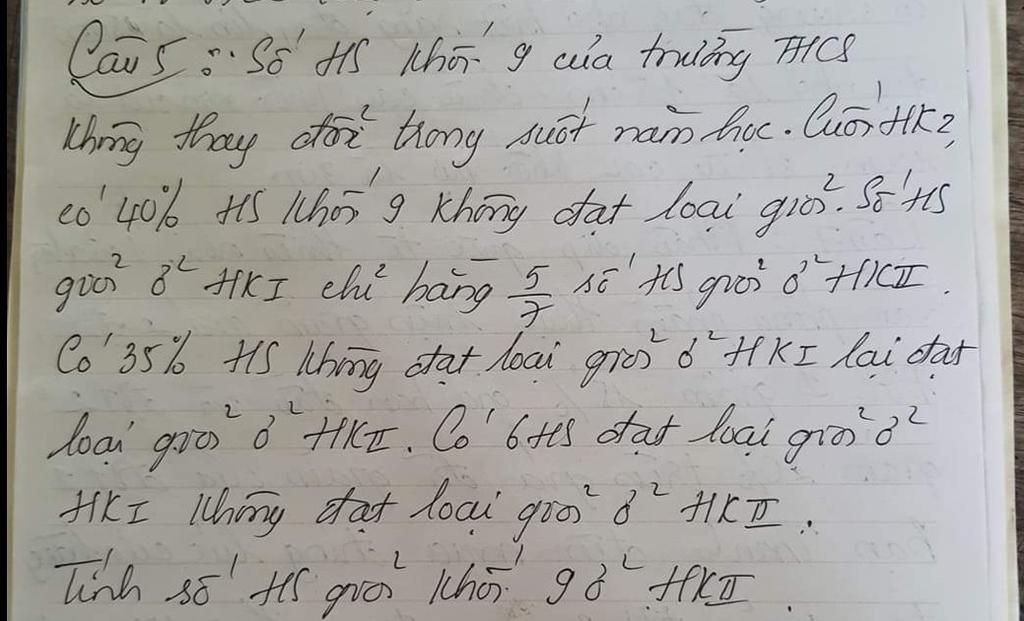 Câu 5 : Số HS khối 9 của trường THCS
không thay đổi trong suốt năm học. Cuối HK2,
có 40% HS khối 9 không đạt loại giỏi. Số HS
giỏi ở HKI chỉ bằng 5/7 số HS giỏi ở HKII.
Có 35% HS không đạt loại giỏi ở HKI lại đạt
loại giỏi ở HKII. Có 6HS đạt loại giỏi ở
HKI không đạt loại giỏi ở HKII.
Tính số HS giỏi khối 9 ở HKII.